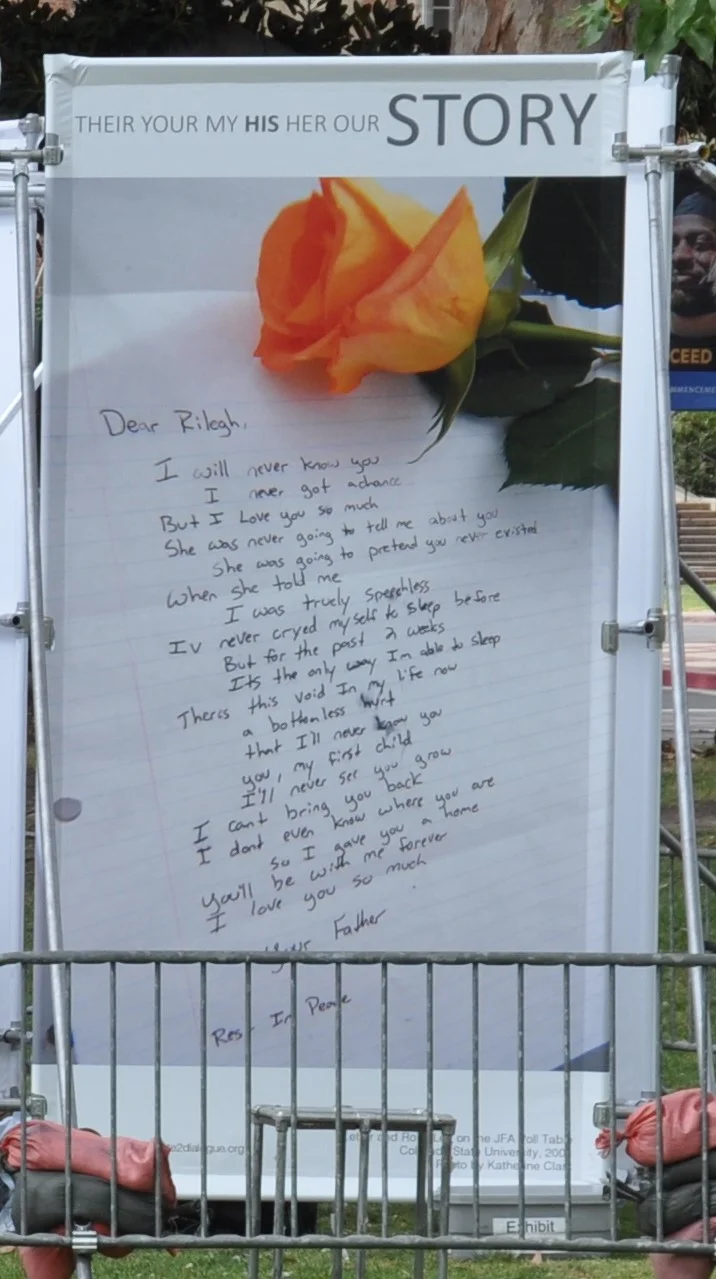 THEIR YOUR MY HIS HER OUR STORY
CEED
Dear Rilegh,
I will never know you
I never got a chance
But I Love you so much
She was never going to tell me about you
She was going to pretend you never existed
When she told me
I was truely speechless
Iv never cryed myself to sleep before
But for the past 2 weeks
Its the only way Im able to sleep
Theres this void In my life now
a bottomless hurt
that I'll never know you
you, my first child
I'll never see you grow
I cant bring you back
I dont even know where you are
so I gave you a home
You'll be with me forever
I love you so much
Your Father
Rest In Peace
on the JFA Poll Table
State University,
Photo by Katherine
Exhibit